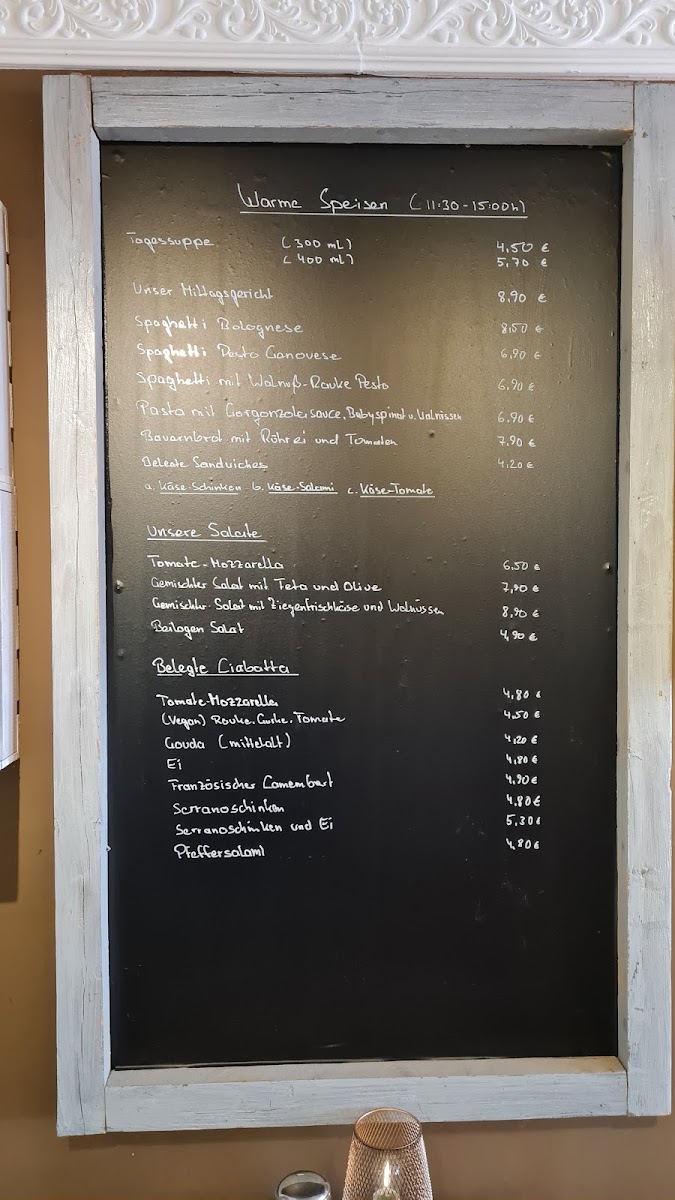 Warme Speisen (11:30-15:00h)
Tagessuppe (300 mL) 4,50 €
(400 mL) 5,70 €
Unser Mittagsgericht 8,90 €
Spaghetti Bolognese 8,50 €
Spaghetti Pesto Genovese 6,90 €
Spaghetti mit Walnuß-Rauke Pesto 6,90 €
Pasta mit Gorgonzolasauce, Babyspinat u. Walnüssen 6,90 €
Bauernbrot mit Rührei und Tomaten 7,90 €
Belegte Sandwiches 4,20 €
a. Käse-Schinken b. Käse-Salami c. Käse-Tomate
Unsere Salate
Tomate-Mozzarella 6,50 €
Gemischter Salat mit Feta und Olive 7,90 €
Gemischter Salat mit Ziegenfrischkäse und Walnüssen 8,90 €
Beilagen Salat 4,90 €
Belegte Ciabatta
Tomate-Mozzarella 4,80 €
(Vegan) Rauke, Gurke, Tomate 4,50 €
Gouda (mittelalt) 4,20 €
Ei 4,80 €
Französischer Camembert 4,90 €
Serranoschinken 4,80 €
Serranoschinken und Ei 5,30 €
Pfeffersalami 4,80 €